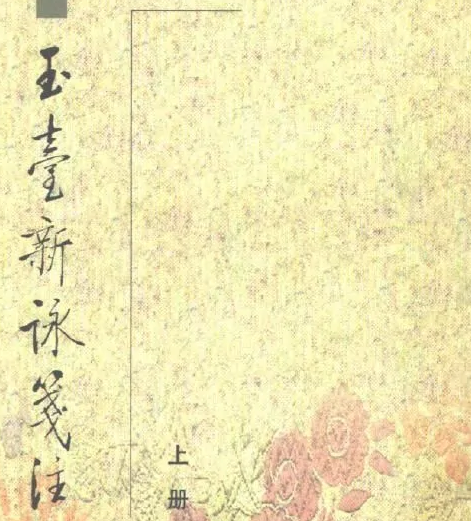 玉臺新咏箋注
上册